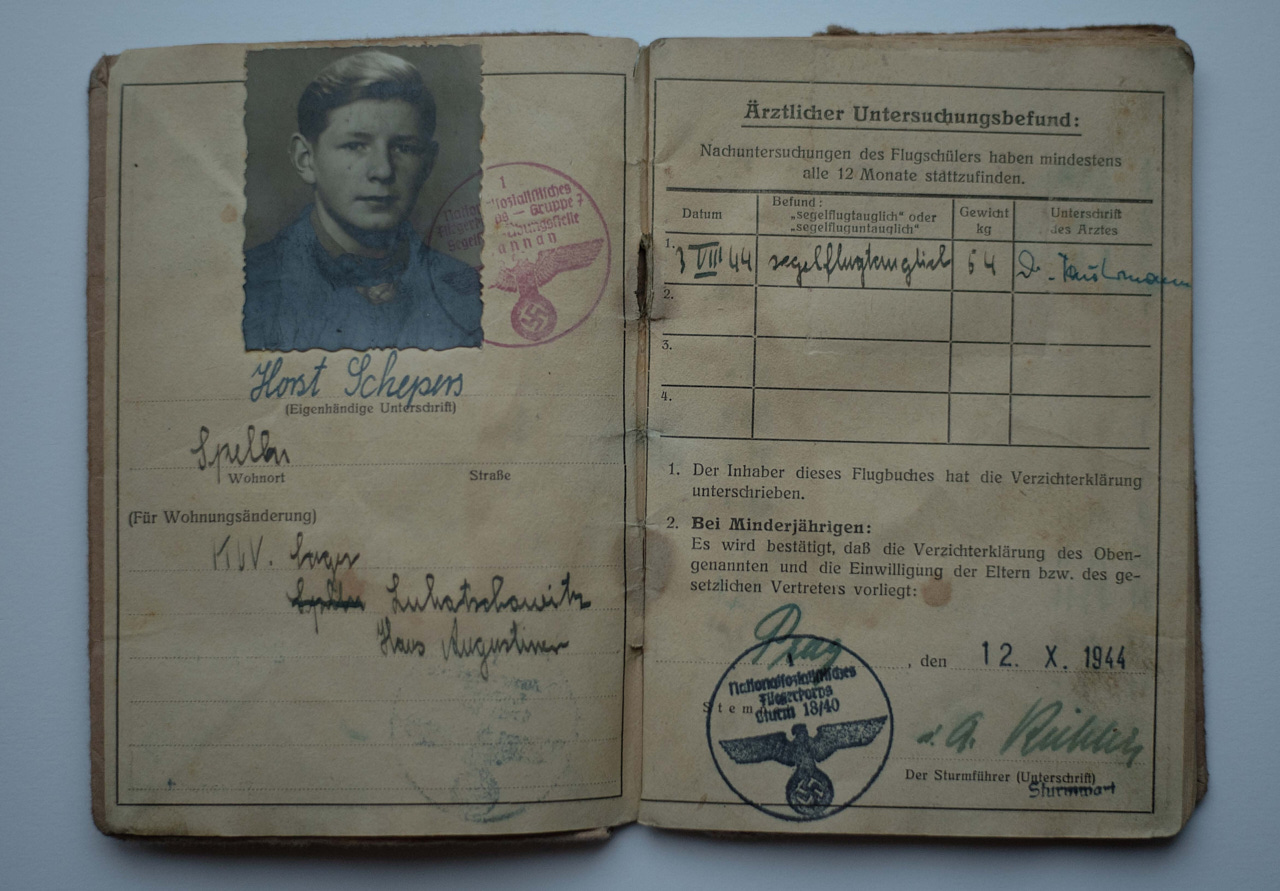 1
Nationalsozialistisches
Fliegerkorps — Gruppe 7
Horst Schepers
(Eigenhändige Unterschrift)
Spelln
Wohnort Straße
(Für Wohnungsänderung)
KLV. Lager
Luhatschowitz
Haus Augustiner
Ärztlicher Untersuchungsbefund:
Nachuntersuchungen des Flugschülers haben mindestens
alle 12 Monate stattzufinden.
Datum Befund: „segelflugtauglich“ oder „segelfluguntauglich“ Gewicht kg Unterschrift des Arztes
1. 3 VIII 44 segelflugtauglich 64 Dr.
2.
3.
4.
1. Der Inhaber dieses Flugbuches hat die Verzichterklärung
unterschrieben.
2. Bei Minderjährigen:
Es wird bestätigt, daß die Verzichterklärung des Oben-
genannten und die Einwilligung der Eltern bzw. des ge-
setzlichen Vertreters vorliegt:
Prag, den 12. X. 1944
1
Nationalsozialistisches
Fliegerkorps
Sturm 18/40
Der Sturmführer (Unterschrift)
Sturmwart